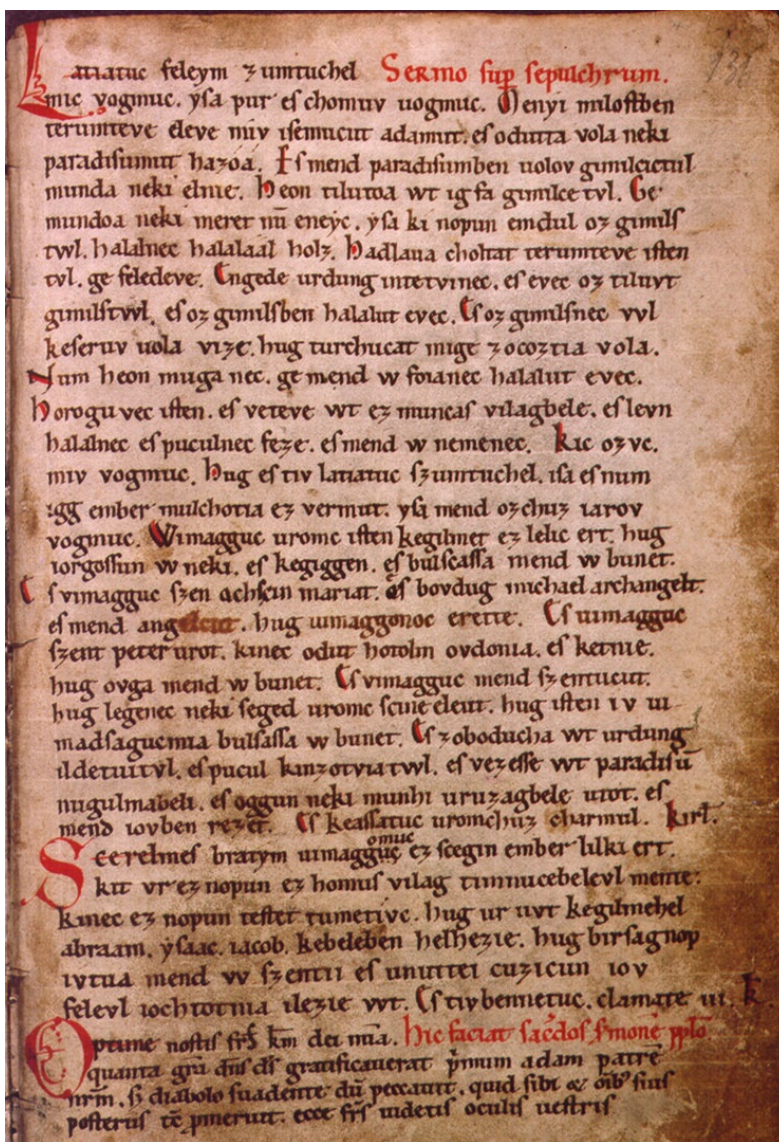 Latiatuc feleym zumtuchel Sermo sup sepulchrum. 136
mic vogmuc. ysa pur es chomuv uogmuc. Menyi milostben
terumteve eleve miv isemucut adamut. es odutta vola neki
paradisumut hazóá. Es mend paradisumben uolov gimilcictul
munda neki elnie. Heon tilutoa wt ig fa gimilce tvl. Ge
mundoa neki meret nū eneyc. ysa ki nopun emdul oz gimils
twl. halalnec halaláál holz. Hadlaua choltat terumteve isten
tvl. ge feledeve. Engede urdung intetvinec. es evec oz tiluvt
gimilstwl. es oz gimilsben halalut evec. Es oz gimilsnec vvl
keseruv uola vize. hug turchucat mige zocoztia vola.
Num heon muga nec. ge mend w foianec halalut evec.
Horogu vec isten. es veteve wt ez muncas vilagbele. es levn
halalnec es puculnec feze. es mend w nemenec. Kic ozvc.
miv vogmuc. Hug es tiv latiatuc szumtuchel. isa es num
igg ember mulchotia ez vermut. ysa mend ozchuz iarov
vogmuc. Wimagguc uromc isten kegilmet ez lelic ert. hug
iorgossun w neki. es kegiggen. es bulscassa mend w bunet.
Es vimagguc szen achscin mariat. es bovdug michael archangelt.
es mend angelcut. hug uimaggonoc erette. Es uimagguc
szent peter urot. kinec odut hotolm ovdonia. es ketnie.
hug ovga mend w bunet. Es vimagguc mend szentucut.
hug legenec neki seged uromc scine eleut. hug isten iv ui
madsaguc mia bulsassa w bunet. Es zoboducha wt urdung
ildetuitvl. es pucul kinzotvia twl. es vezesse wt paradisū
nugulmabeli. es oggun neki munhi uruzagbele utot. es
mend iovben rezet. Es keassatuc uromchuz charmul. Kirł.
Scerelmes bratym uimagg omuc ez scegin ember lilki ert.
kit vr ez nopun ez homus vilag timnucebelevl mente.
kinec ez nopun testet tumetivc. hug ur uvt kegilmehel
abraam. ysaac. iacob. kebeleben helhezie. hug birsagnop
ivtua mend w szentii es unuttei cuzicun iov
felevl iochtotnia ilezie wt. Es tivbennetuc. clamate iii. K
Optime nostis frs̄ km̄ dei mīa. Hic faciat saćdos s̄monē pp̄lo
quanta grā dn̄s ds̄ gratificauerat p̄mum adam patrē
nrm̄. s; diabolo suadente dū peccauit. quid sibi & oib' suis
posteris tē p̄meruit. ecce frs̄ uidetis oculis uestris